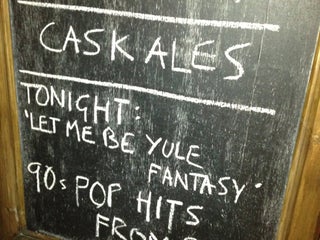 CASK ALES
TONIGHT:
'LET ME BE YULE
FANTASY'
90s POP HITS
FROM